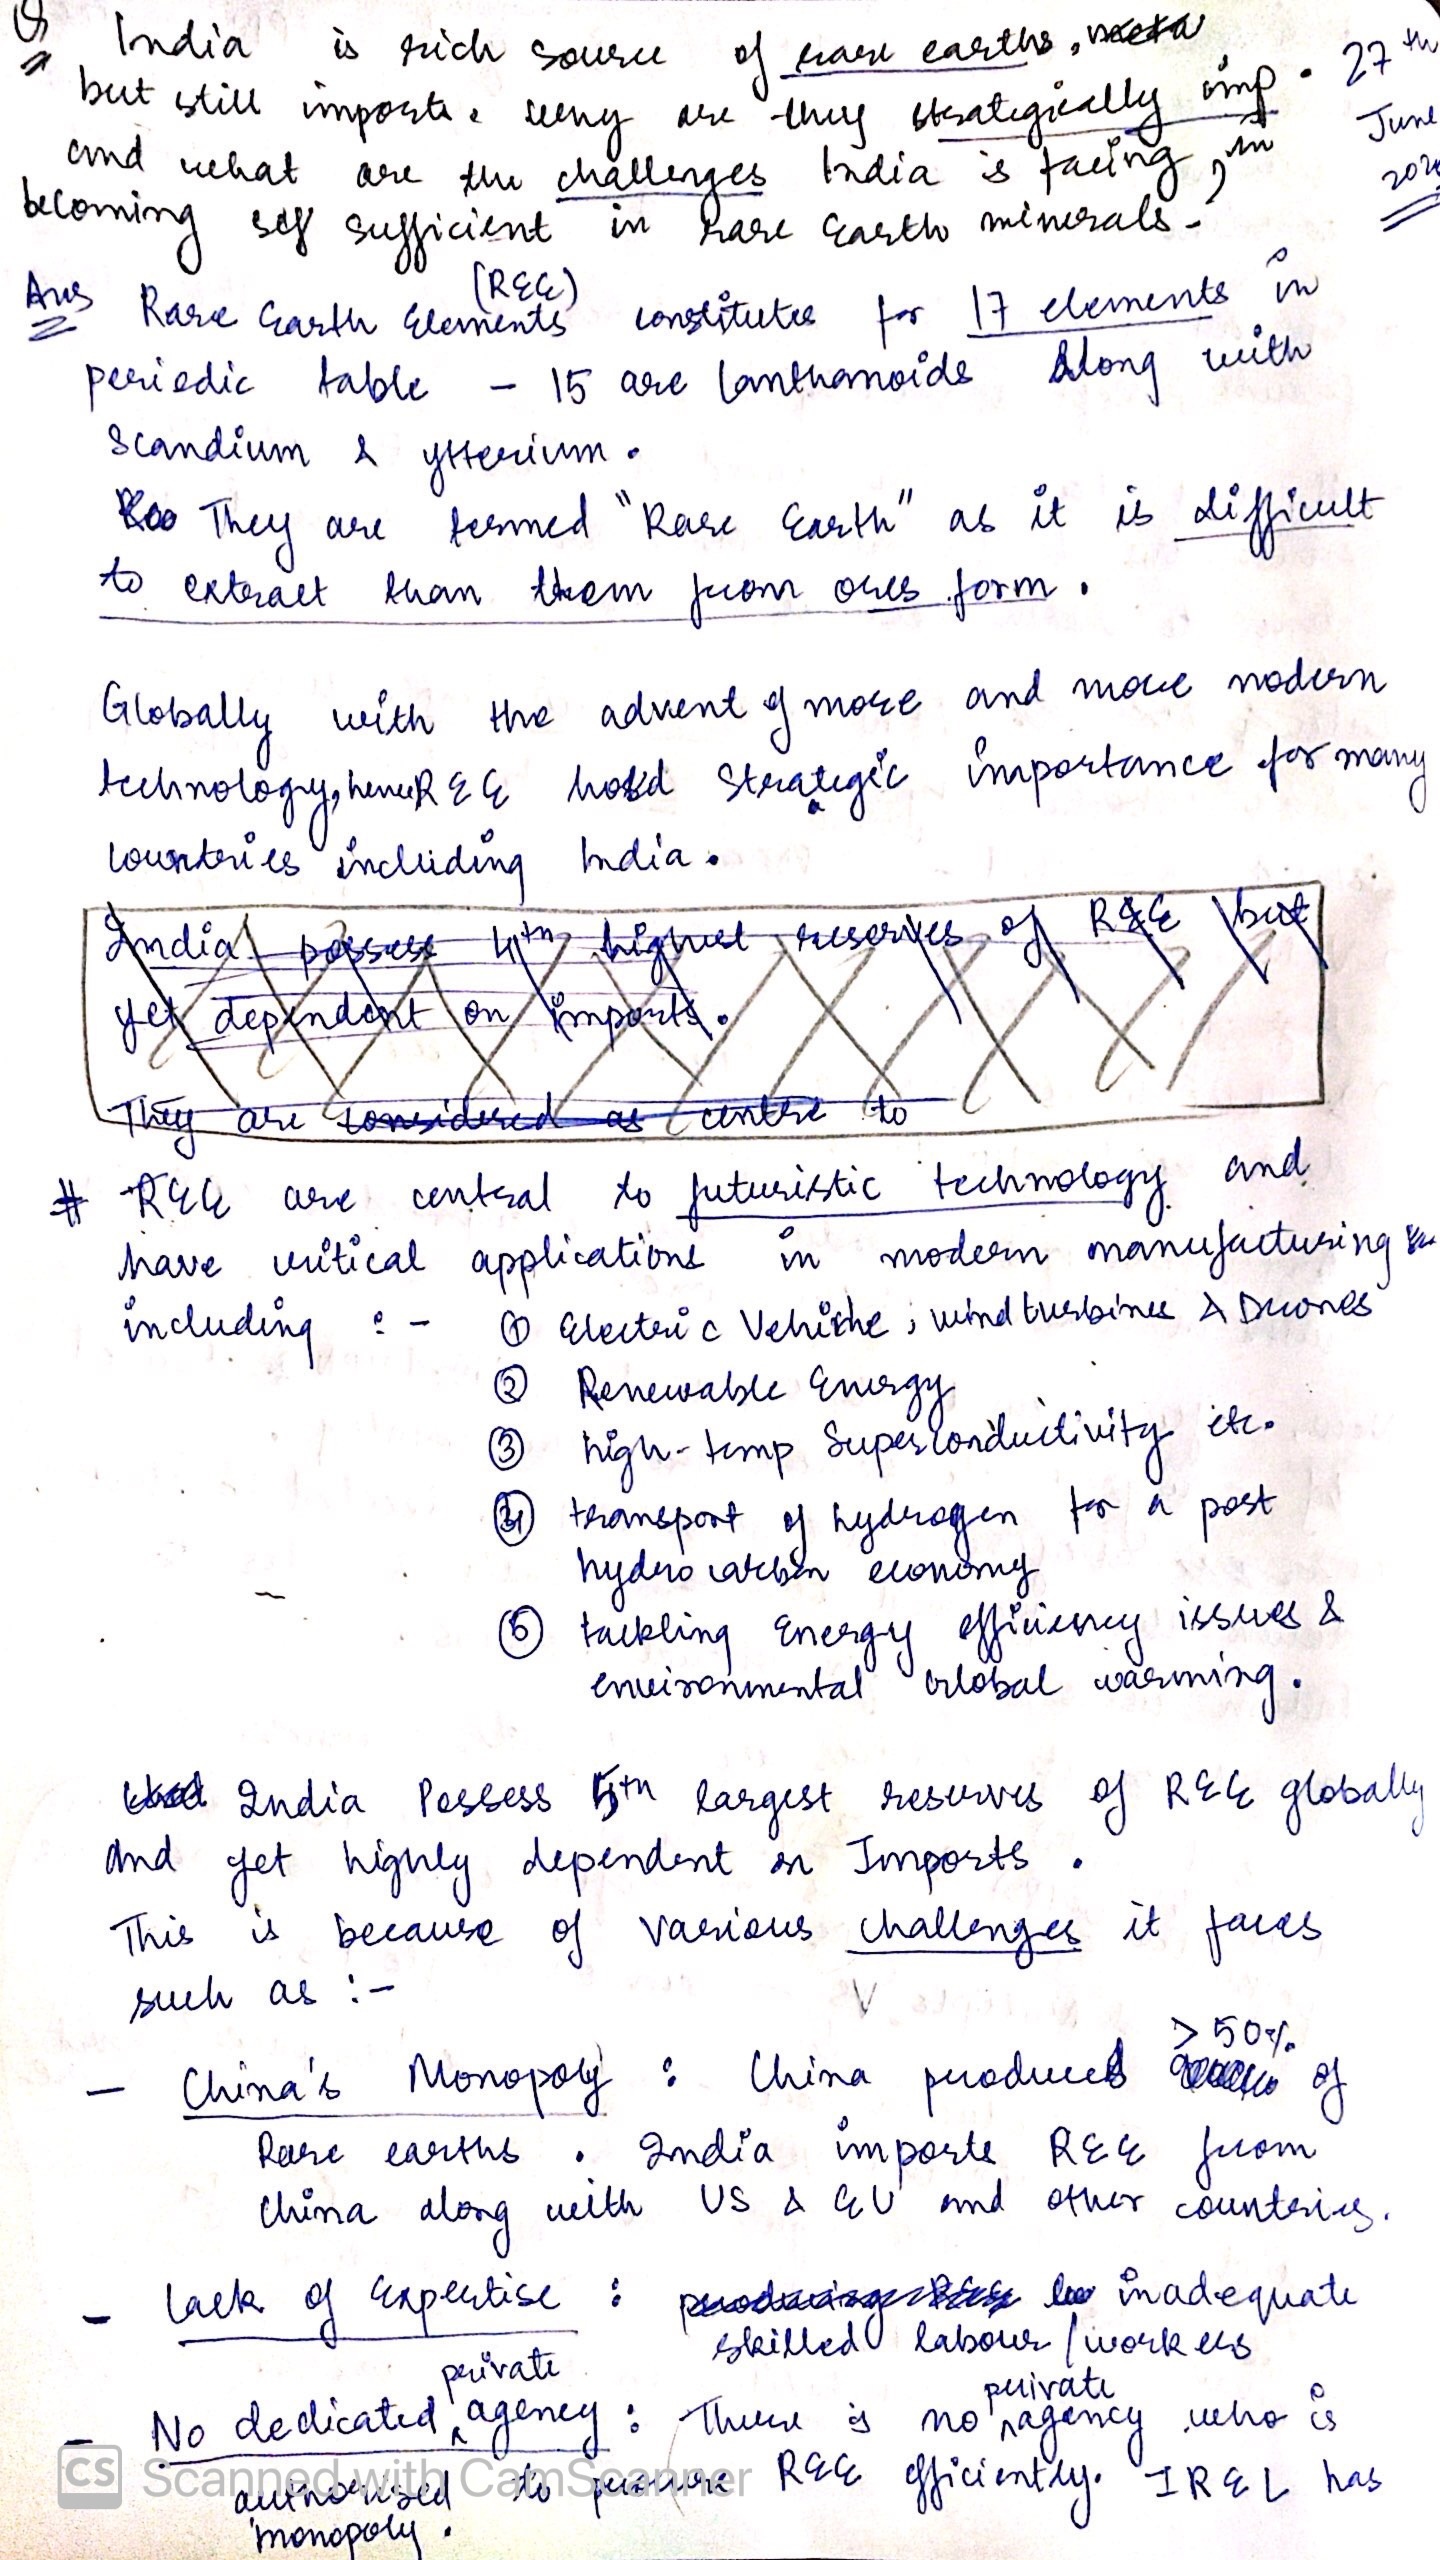 Q India is rich source of rare earths,
but still imports. Why are they strategically imp.
and what are the challenges India is facing, in
becoming self sufficient in rare earth minerals.
27th
June
Ans Rare Earth Elements (REE) constitutes for 17 elements in
periodic table - 15 are lanthanoids along with
Scandium & ytterium.
They are termed "Rare Earth" as it is difficult
to extract than them from ores form.
Globally with the advent of more and more modern
technology, hence REE hold strategic importance for many
countries including India.
India possess 4th highest reserves of REE but
yet dependent on imports.
They are considered as centre to
# REE are central to futuristic technology and
have critical applications in modern manufacturing
including :- ① Electric Vehicle, wind turbines & Drones
② Renewable Energy
③ high-temp Superconductivity etc.
④ transport of hydrogen for a post
hydrocarbon economy
⑤ tackling Energy efficiency issues &
environmental Global warming.
India Possess 5th largest reserves of REE globally
and yet highly dependent on Imports.
This is because of various challenges it faces
such as :-
- China's Monopoly : China produces >50% of
Rare earths. India imports REE from
China along with US & EU and other countries.
- Lack of Expertise : inadequate
skilled labour/workers
- No dedicated private agency : There is no private agency who is
authorised to REE efficiently. IREL has
monopoly.
CS Scanned with CamScanner